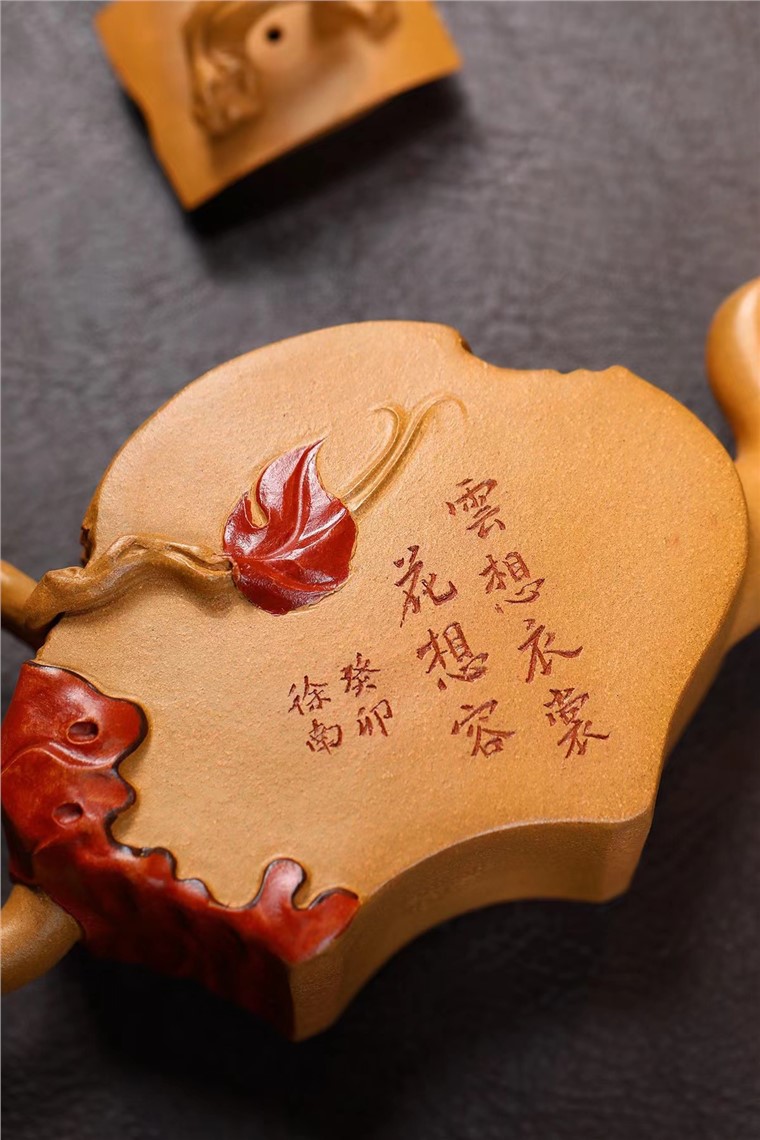 雲想衣裳
花想容
癸卯
徐南